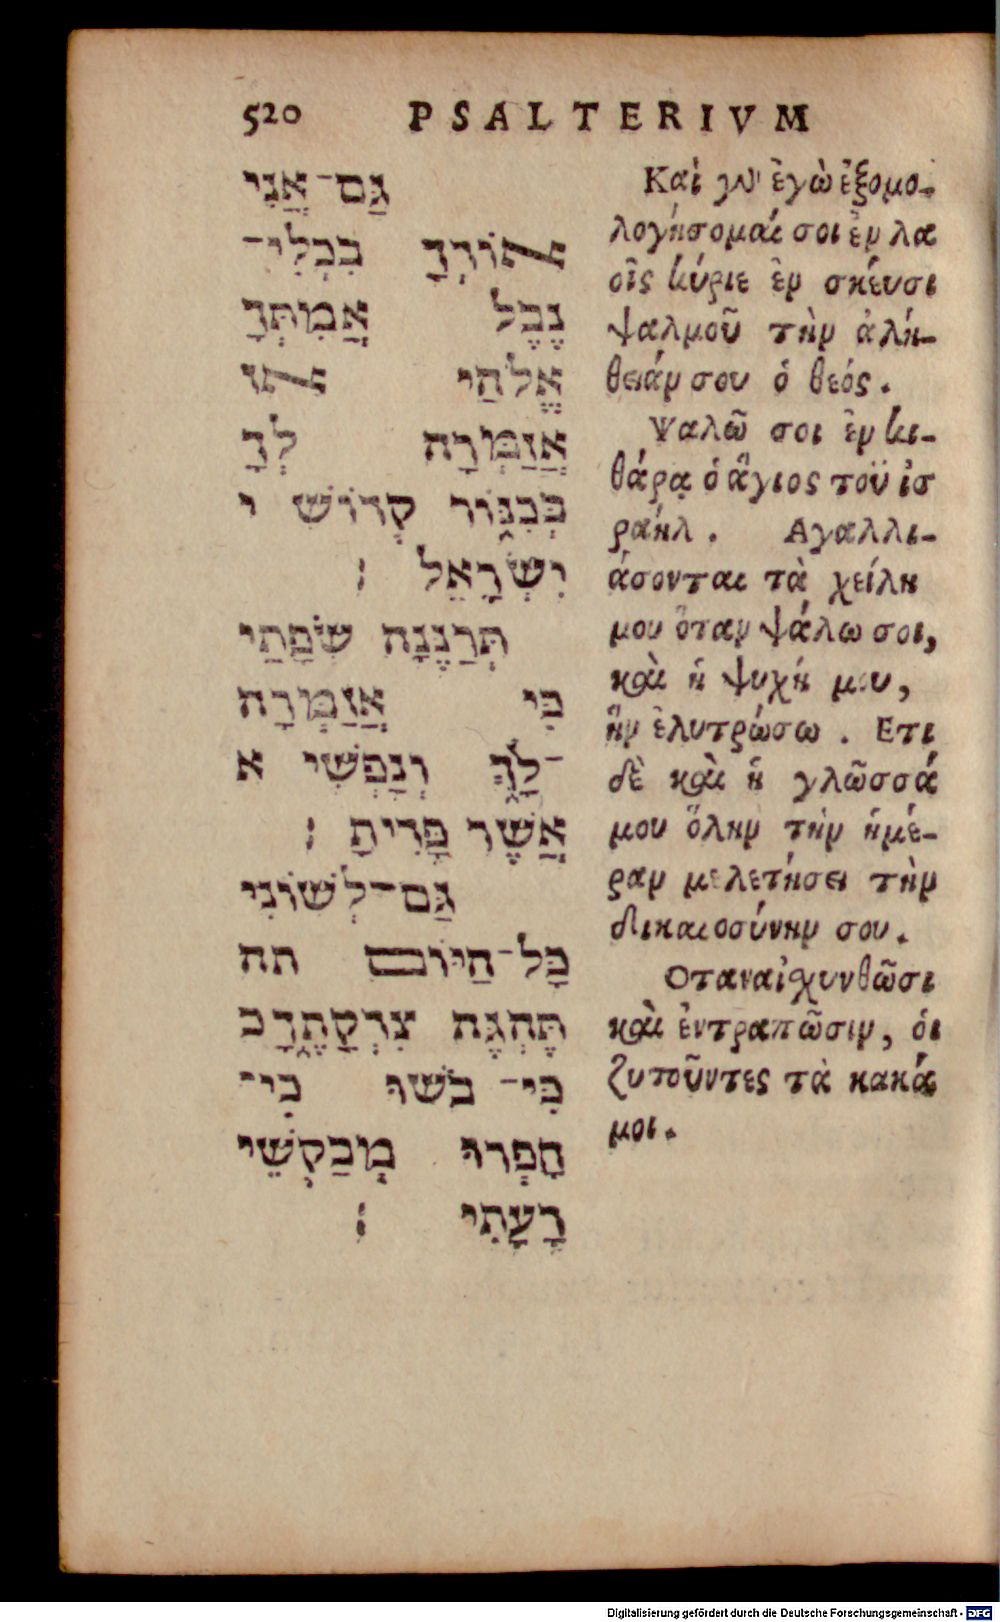 520 PSALTERIVM
גַּם־אֲנִי
אוֹדְךָ בִכְלִי־
נֶבֶל אֲמִתְּךָ
אֱלֹהַי או
אֲזַמְּרָה לְךָ
בְּכִנּוֹר קְדוֹשׁ י
יִשְׂרָאֵל :
תְּרַנֶּנָּה שְׂפָתַי
כִּי אֲזַמְּרָה
־לָךְ וְנַפְשִׁי א
אֲשֶׁר פָּדִיתָ :
גַּם־לְשׁוֹנִי
כָּל־הַיּוֹם תה
תֶּהְגֶּה צִדְקָתֶךָ כ
כִּי־ בֹשׁוּ כִי־
חָפְרוּ מְבַקְשֵׁי
רָעָתִי :
Καὶ γὰρ ἐγὼ ἐξομο-
λογήσομαί σοι ἐν λα
οῖς κύριε ἐν σκέυσι
ψαλμοῦ τὴν ἀλή-
θειάν σου ὁ θεός.
Ψαλῶ σοι ἐν κι-
θάρᾳ ὁ ἅγιος τοῦ ἰσ
ραήλ. Αγαλλι-
άσονται τὰ χείλη
μου ὅταν ψάλω σοι,
καὶ ἡ ψυχή μου,
ἣν ἐλυτρώσω. Ετι
δὲ καὶ ἡ γλῶσσά
μου ὅλην τὴν ἡμέ-
ραν μελετήσει τὴν
δικαιοσύνην σου.
Οταναἰχυνθῶσι
καὶ ἐντραπῶσιν, ὁι
ζυτοῦντες τὰ κακά
μοι.
Digitalisierung gefördert durch die Deutsche Forschungsgemeinschaft - DFG